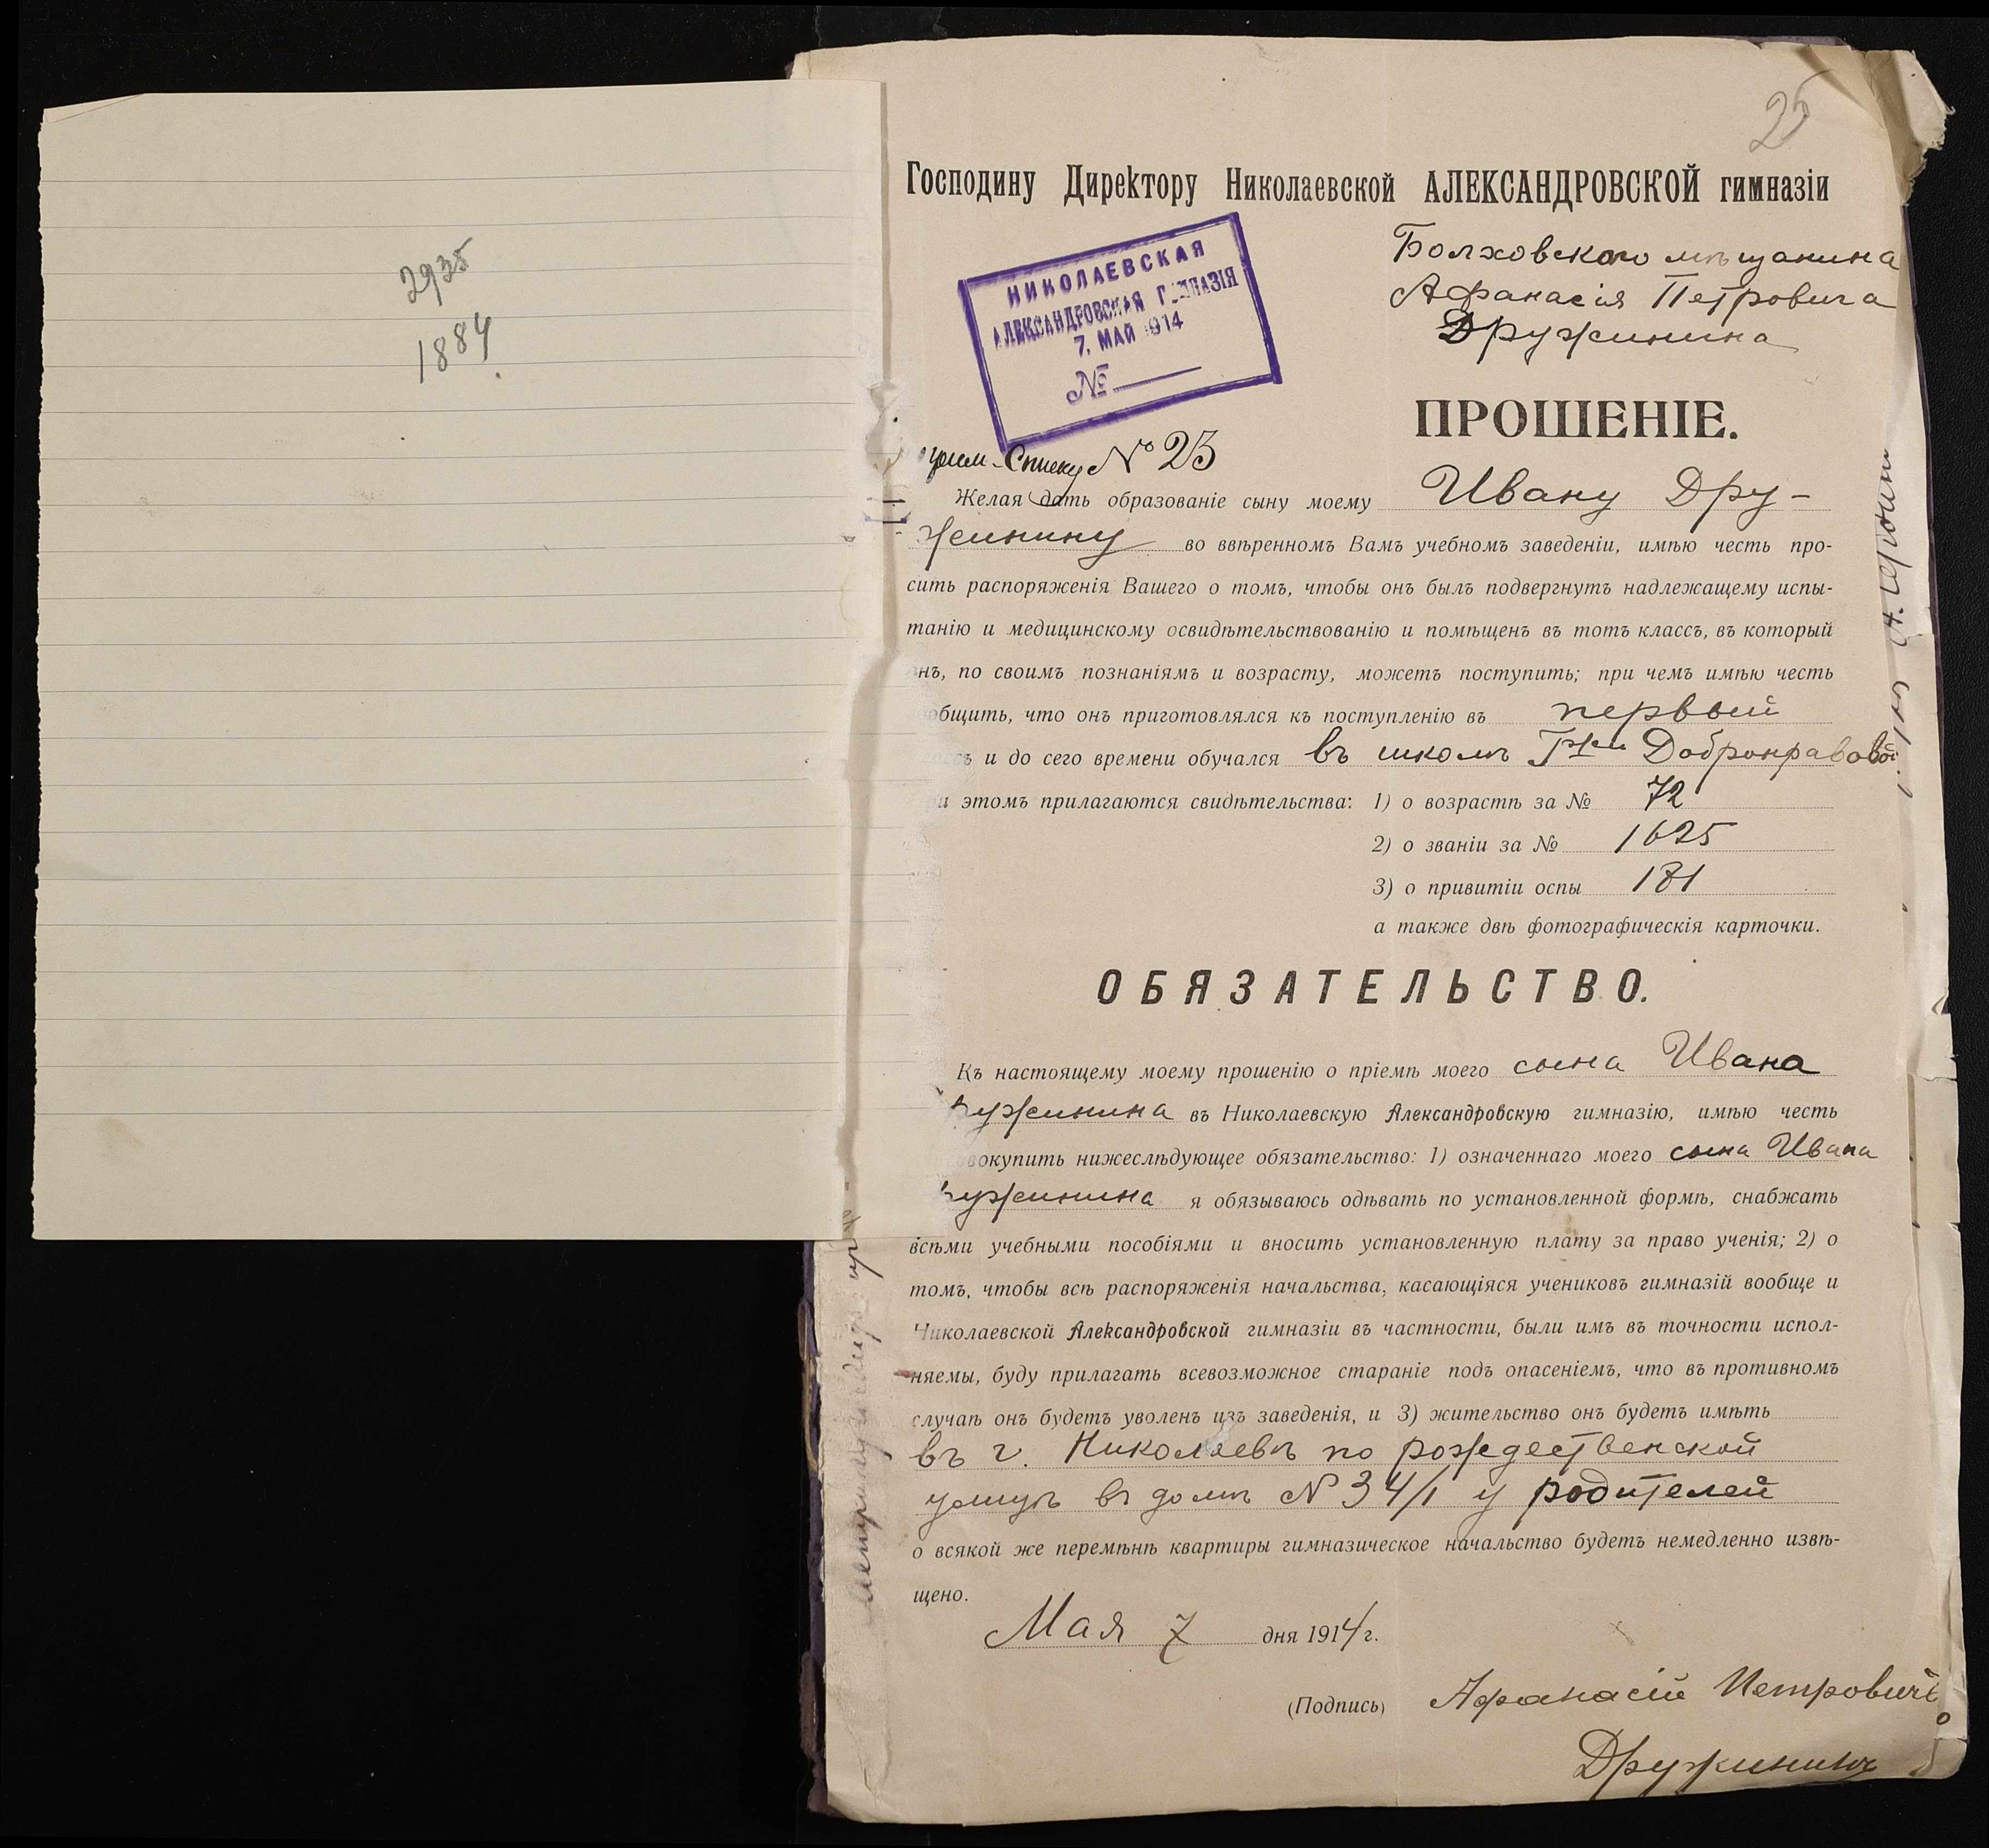 2935
1884
25
Господину Директору Николаевской АЛЕКСАНДРОВСКОЙ гимназіи
Болховского мѣщанина
Афанасія Петровича
Дружинина
НИКОЛАЕВСКАЯ
АЛЕКСАНДРОВСКАЯ ГИМНАЗІЯ
7. МАЙ 1914
№
ПРОШЕНІЕ.
Списку № 25
Желая дать образованіе сыну моему Ивану Дру-
жинину во ввѣренномъ Вамъ учебномъ заведеніи, имѣю честь про-
сить распоряженія Вашего о томъ, чтобы онъ былъ подвергнутъ надлежащему испы-
танію и медицинскому освидѣтельствованію и помѣщенъ въ тотъ классъ, въ который
нъ, по своимъ познаніямъ и возрасту, можетъ поступить; при чемъ имѣю честь
общить, что онъ приготовлялся къ поступленію въ первый
съ и до сего времени обучался въ школѣ Гжи Добронравовой
ри этомъ прилагаются свидѣтельства: 1) о возрастѣ за № 72
2) о званіи за № 1625
3) о привитіи оспы 181
а также двѣ фотографическія карточки.
ОБЯЗАТЕЛЬСТВО.
Къ настоящему моему прошенію о пріемѣ моего сына Ивана
ружинина въ Николаевскую Александровскую гимназію, имѣю честь
вокупить нижеслѣдующее обязательство: 1) означеннаго моего сына Ивана
ружинина я обязываюсь одѣвать по установленной формѣ, снабжать
всѣми учебными пособіями и вносить установленную плату за право ученія; 2) о
томъ, чтобы всѣ распоряженія начальства, касающіяся учениковъ гимназій вообще и
Николаевской Александровской гимназіи въ частности, были имъ въ точности испол-
няемы, буду прилагать всевозможное стараніе подъ опасеніемъ, что въ противномъ
случаѣ онъ будетъ уволенъ изъ заведенія, и 3) жительство онъ будетъ имѣть
въ г. Николаевѣ по рождественской
улицѣ въ домѣ № 34/1 у родителей
о всякой же перемѣнѣ квартиры гимназическое начальство будетъ немедленно извѣ-
щено.
Мая 7 дня 1914 г.
(Подпись) Афанасій Петровичъ
Дружининъ